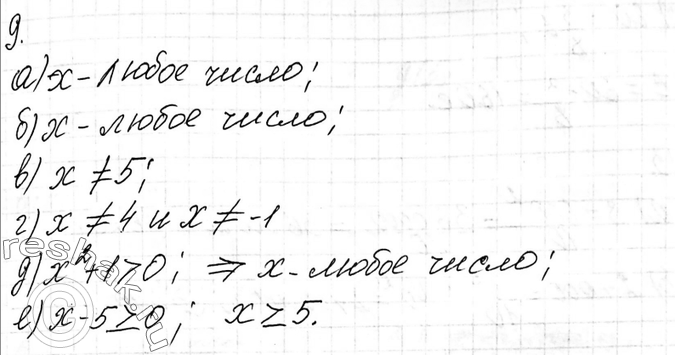 9.
а) x - любое число;
б) x - любое число;
в) x ≠ 5;
г) x ≠ 4 и x ≠ -1
д) x² + 1 > 0; ⇒ x - любое число;
е) x - 5 ≥ 0; x ≥ 5.
reshak.ru